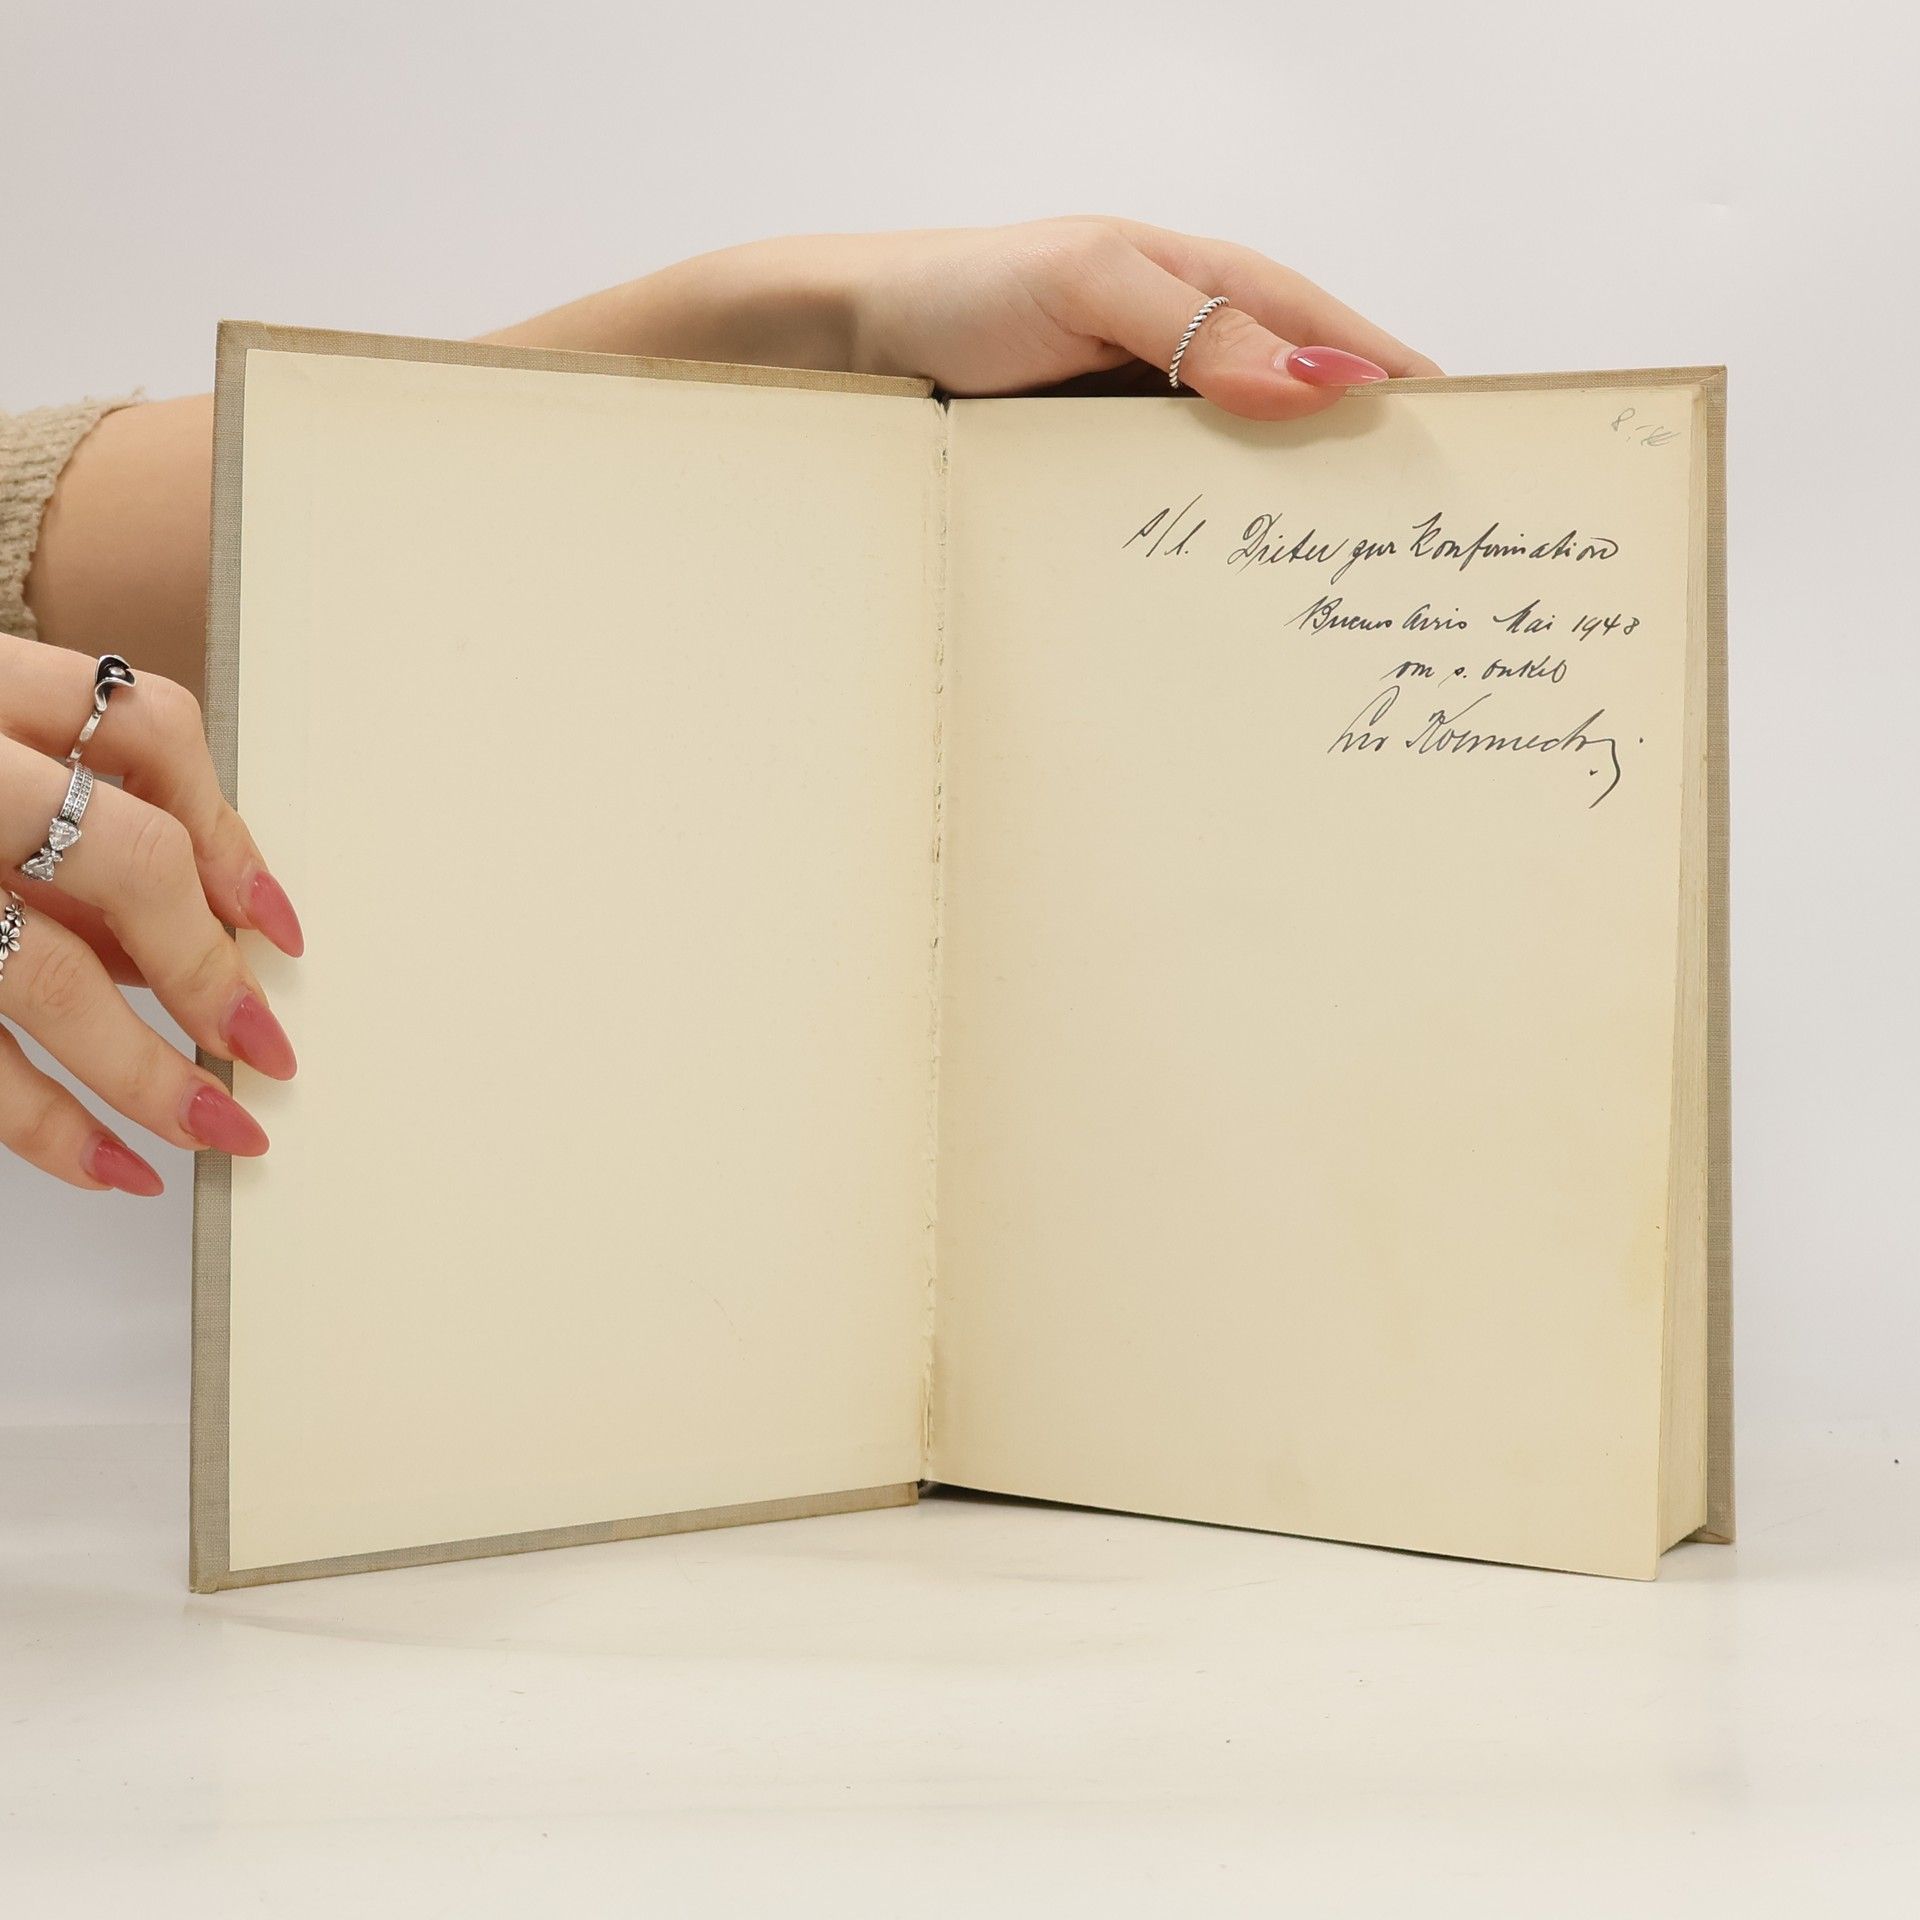 8.-
s/l. Dieter zur Konfirmation
Buenos Aires Mai 1948
vom s. Onkel